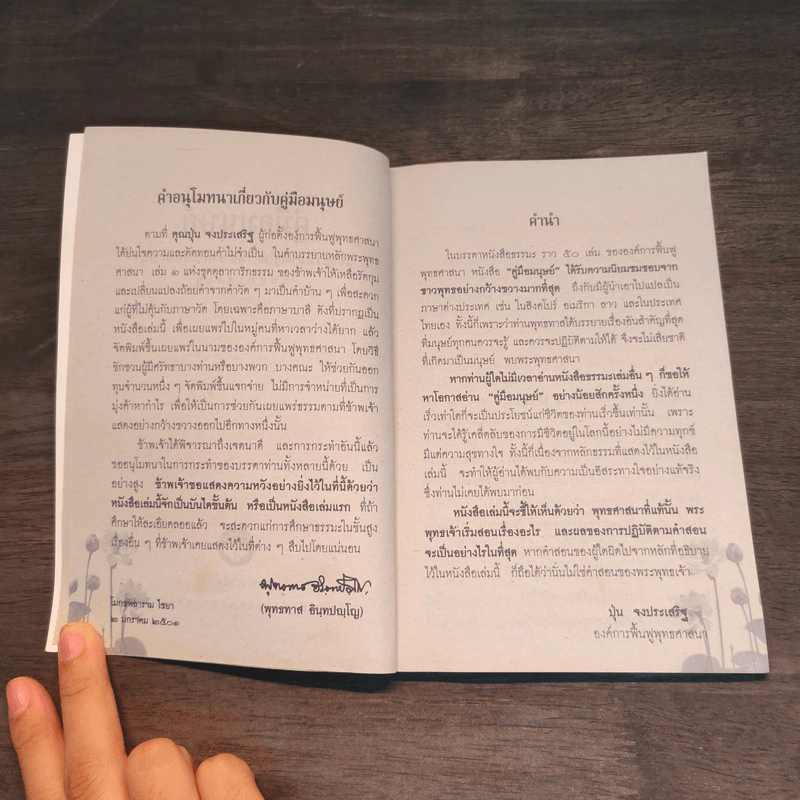 คำอนุโมทนาเกี่ยวกับคู่มือมนุษย์
ตามที่ คุณปุ่น จงประเสริฐ ผู้ก่อตั้งองค์การฟื้นฟูพุทธศาสนา
ได้บ่นใจความและตัดทอนคำไม่จำเป็น ในคำบรรยายหลักพระพุทธ
ศาสนา เล่ม ๑ แห่งชุดตุลาการิกธรรม ของข้าพเจ้าให้เหลือรัดกุม
และเปลี่ยนแปลงถ้อยคำจากคำวัด ๆ มาเป็นคำบ้าน ๆ เพื่อสะดวก
แก่ผู้ที่ไม่คุ้นกับภาษาวัด โดยเฉพาะคือภาษาบาลี ดังที่ปรากฏเป็น
หนังสือเล่มนี้ เพื่อเผยแพร่ไปในหมู่คนที่หาเวลาว่างได้ยาก แล้ว
จัดพิมพ์ขึ้นเผยแพร่ในนามขององค์การฟื้นฟูพุทธศาสนา โดยวิธี
ชักชวนผู้มีศรัทธาบางท่านหรือบางพวก บางคณะ ให้ช่วยกันออก
ทุนจำนวนหนึ่ง ๆ จัดพิมพ์ขึ้นแจกจ่าย ไม่มีการจำหน่ายที่เป็นการ
มุ่งค้าหากำไร เพื่อให้เป็นการช่วยกันเผยแพร่ธรรมตามที่ข้าพเจ้า
แสดงอย่างกว้างขวางออกไปอีกทางหนึ่งนั้น
ข้าพเจ้าได้พิจารณาถึงเจตนาดี และการกระทำอันนี้แล้ว
ขออนุโมทนาในการกระทำของบรรดาท่านทั้งหลายนี้ด้วย เป็น
อย่างสูง ข้าพเจ้าขอแสดงความหวังอย่างยิ่งไว้ในที่นี้ด้วยว่า
หนังสือเล่มนี้จักเป็นบันไดขั้นต้น หรือเป็นหนังสือเล่มแรก ที่ถ้า
ศึกษาให้ละเอียดลออแล้ว จะสะดวกแก่การศึกษาธรรมะในขั้นสูง
เรื่องอื่น ๆ ที่ข้าพเจ้าเคยแสดงไว้ในที่ต่าง ๆ สืบไปโดยแน่นอน
พุทธทาส อินฺทปญฺโญ
(พุทธทาส อินฺทปญฺโญ)
โมกขพลาราม ไชยา
๒ มกราคม ๒๕๐๑
คำนำ
ในบรรดาหนังสือธรรมะ ราว ๕๐ เล่ม ขององค์การฟื้นฟู
พุทธศาสนา หนังสือ "คู่มือมนุษย์" ได้รับความนิยมชมชอบจาก
ชาวพุทธอย่างกว้างขวางมากที่สุด ถึงกับมีผู้นำเอาไปแปลเป็น
ภาษาต่างประเทศ เช่น ในสิงคโปร์ อเมริกา ลาว และในประเทศ
ไทยเอง ทั้งนี้ก็เพราะว่าท่านพุทธทาสได้บรรยายเรื่องอันสำคัญที่สุด
ที่มนุษย์ทุกคนควรจะรู้ และควรจะปฏิบัติตามให้ได้ จึงจะไม่เสียชาติ
ที่เกิดมาเป็นมนุษย์ พบพระพุทธศาสนา
หากท่านผู้ใดไม่มีเวลาอ่านหนังสือธรรมะเล่มอื่น ๆ ก็ขอให้
หาโอกาสอ่าน "คู่มือมนุษย์" อย่างน้อยสักครั้งหนึ่ง ยิ่งได้อ่าน
เร็วเท่าใดก็จะเป็นประโยชน์แก่ชีวิตของท่านเร็วขึ้นเท่านั้น เพราะ
ท่านจะได้รู้เคล็ดลับของการมีชีวิตอยู่ในโลกนี้อย่างไม่มีความทุกข์
มีแต่ความสุขทางใจ ทั้งนี้ก็เนื่องจากหลักธรรมที่แสดงไว้ในหนังสือ
เล่มนี้ จะทำให้ผู้อ่านได้พบกับความเป็นอิสระทางใจอย่างแท้จริง
ซึ่งท่านไม่เคยได้พบมาก่อน
หนังสือเล่มนี้จะชี้ให้เห็นด้วยว่า พุทธศาสนาที่แท้นั้น พระ
พุทธเจ้าเริ่มสอนเรื่องอะไร และผลของการปฏิบัติตามคำสอน
จะเป็นอย่างไรในที่สุด หากคำสอนของผู้ใดผิดไปจากหลักที่อธิบาย
ไว้ในหนังสือเล่มนี้ ก็ถือได้ว่านั่นไม่ใช่คำสอนของพระพุทธเจ้า
ปุ่น จงประเสริฐ
องค์การฟื้นฟูพุทธศาสนา